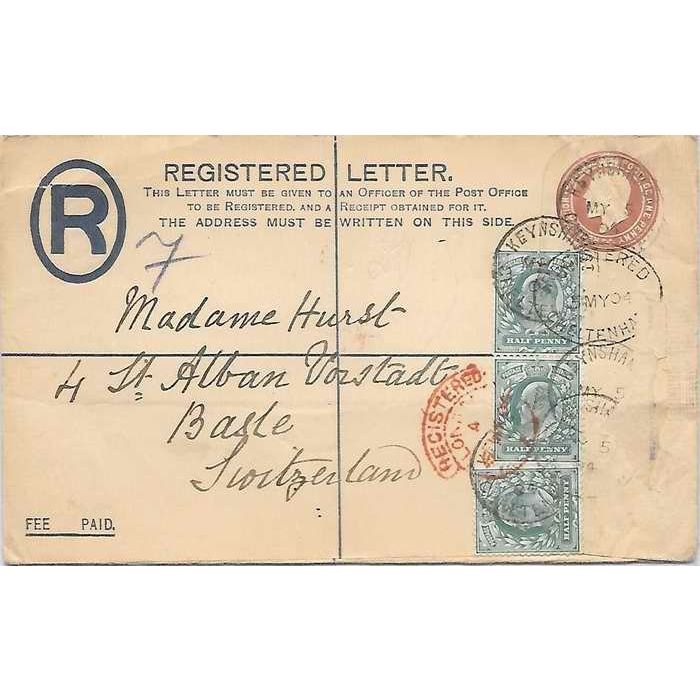 R
REGISTERED LETTER.
THIS LETTER MUST BE GIVEN TO AN OFFICER OF THE POST OFFICE
TO BE REGISTERED, AND A RECEIPT OBTAINED FOR IT.
THE ADDRESS MUST BE WRITTEN ON THIS SIDE.
7
Madame Hurst
4 St. Alban Vorstadt
Basle
Switzerland
FEE PAID.
HALF PENNY
HALF PENNY
HALF PENNY
REGISTERED.
MY 04
MY 5
5